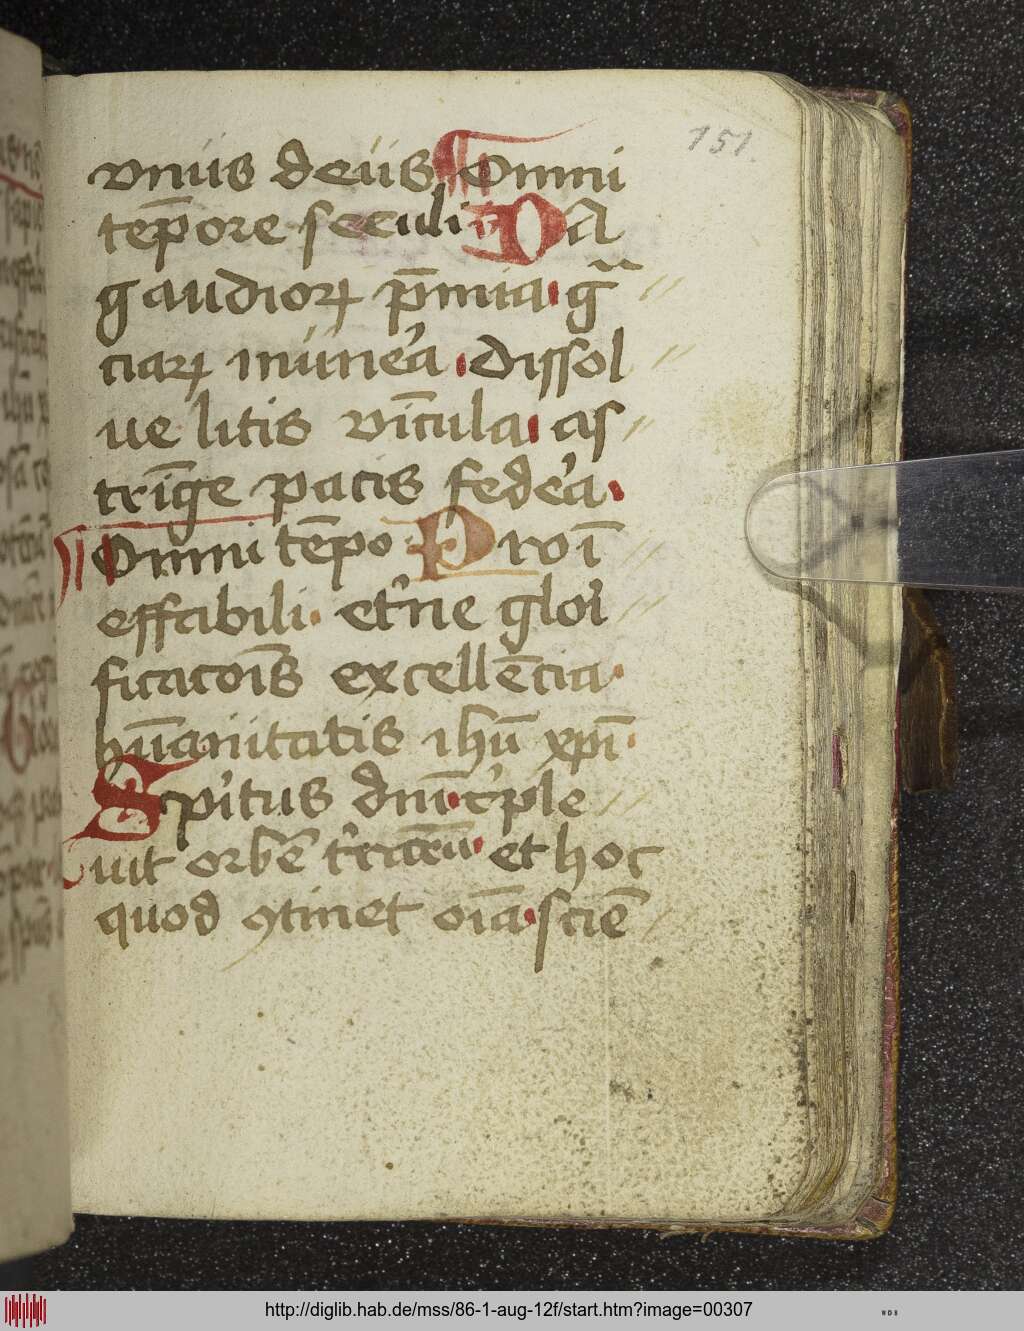 151.
vnus deus Omni
tēpore seculi Da
gaudioꝝ p̄mia g̃
ciaꝝ munēa dissol
ue litis vīcula as
trīge pacis fedēa
Omni tēpo Pro ī
effabili et'ne glori
ficacōis excellēcia
hūanitatis ihū xp̄i
Spītus dnī r'ple
uit orbē et hoc
quod ꝯtinet oīa sciē
http://diglib.hab.de/mss/86-1-aug-12f/start.htm?image=00307